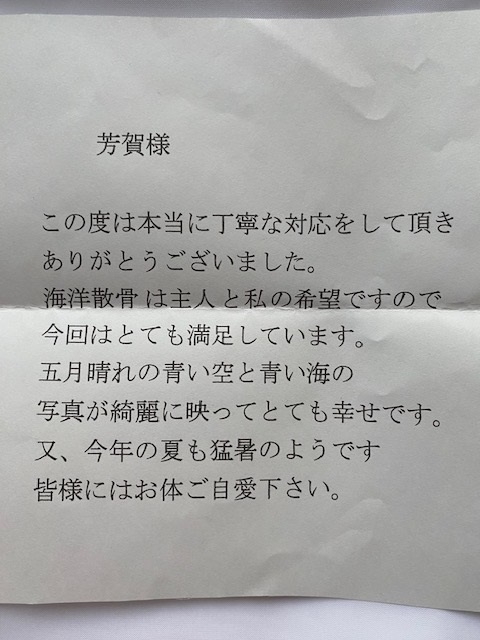 芳賀様
この度は本当に丁寧な対応をして頂き
ありがとうございました。
海洋散骨は主人と私の希望ですので
今回はとても満足しています。
五月晴れの青い空と青い海の
写真が綺麗に映ってとても幸せです。
又、今年の夏も猛暑のようです
皆様にはお体ご自愛下さい。